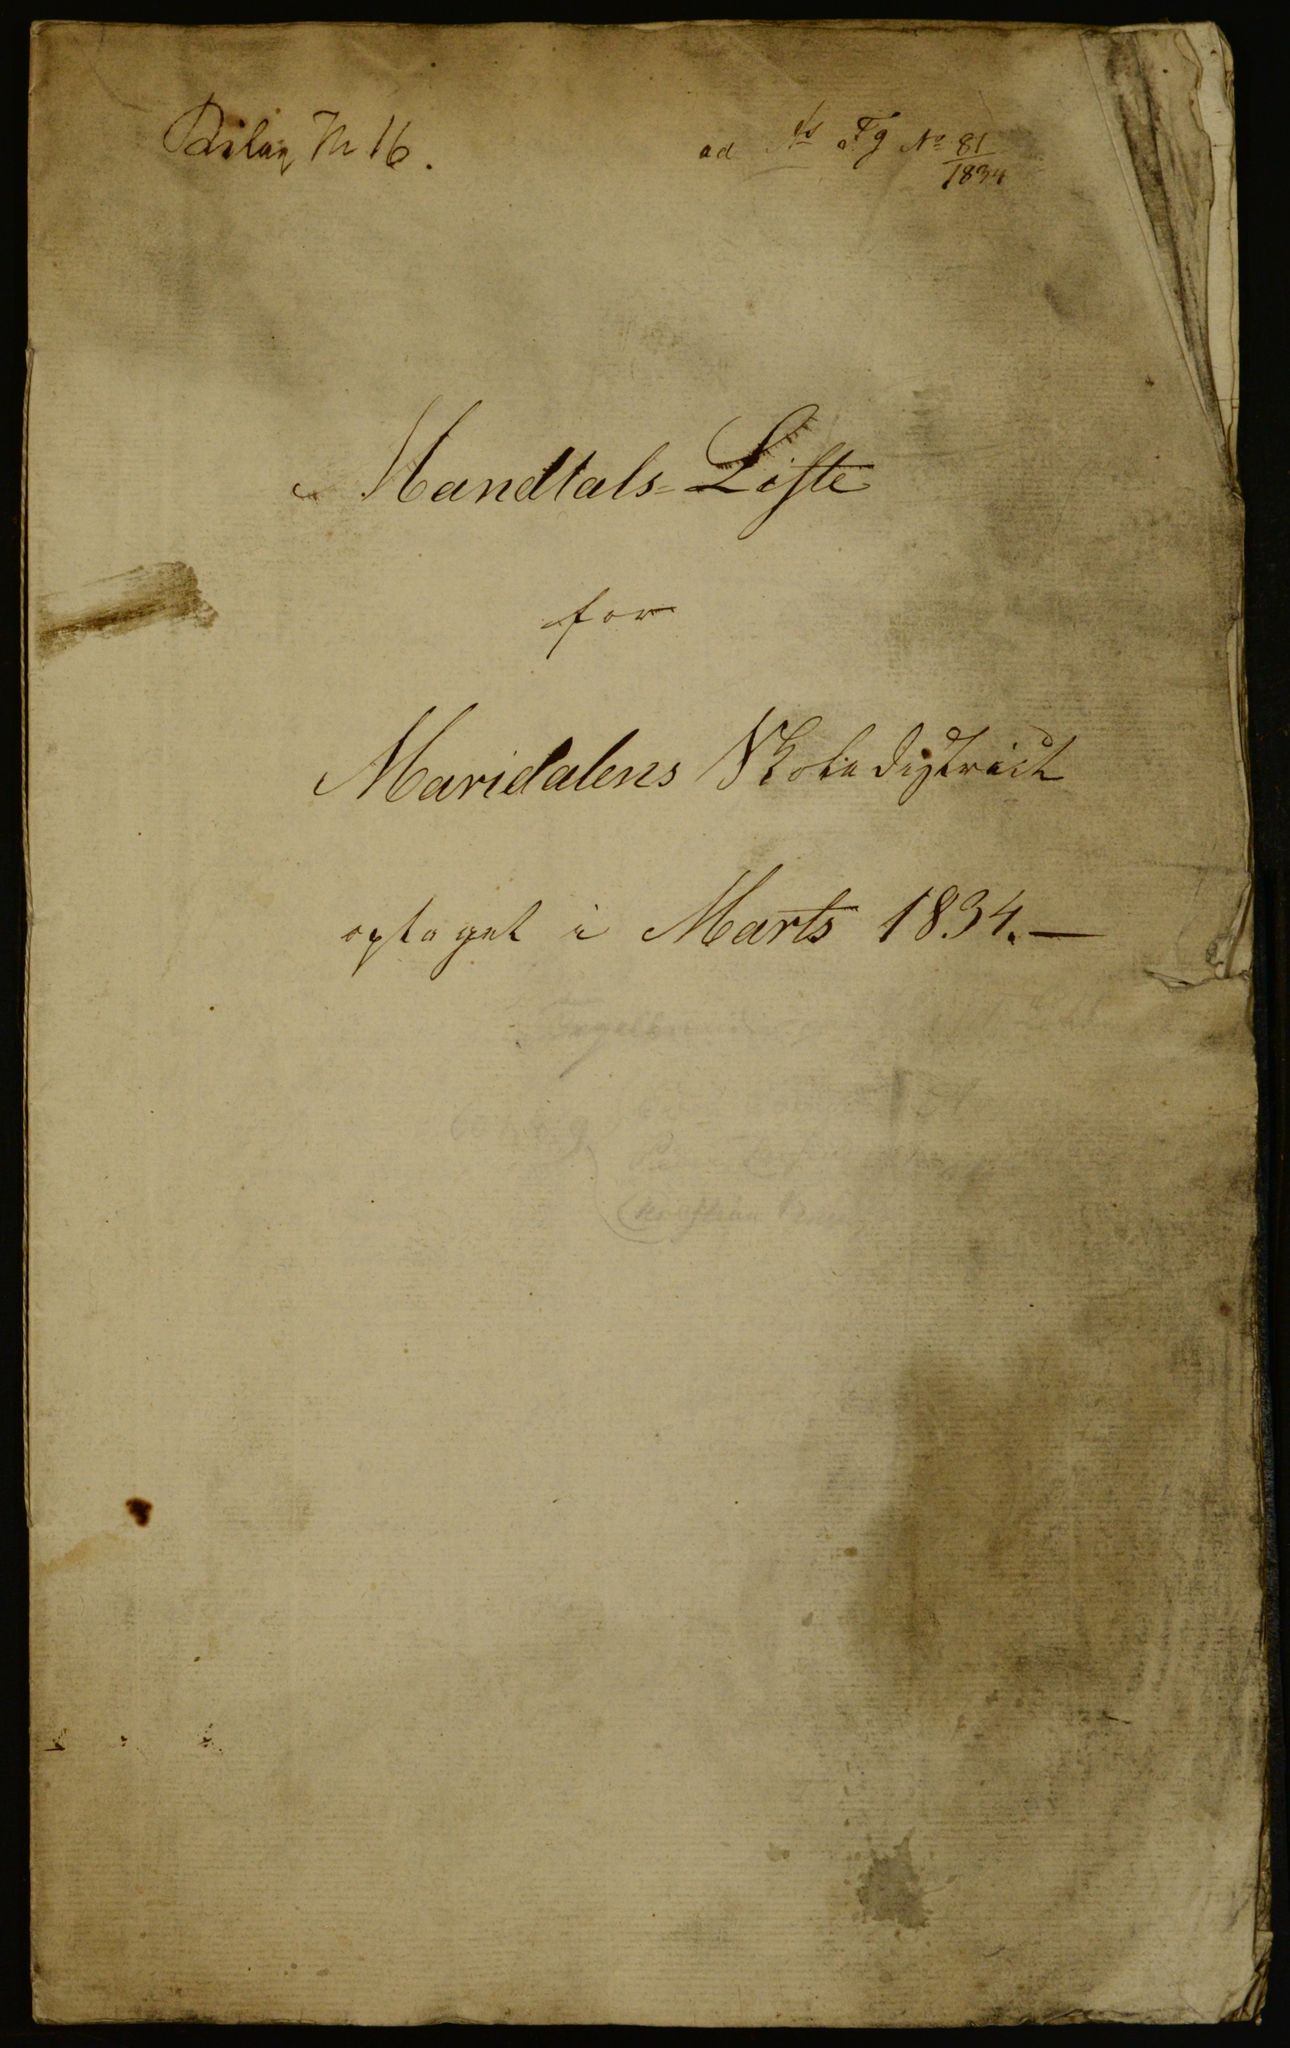 Bilag N 16.
ad Fg No 81/1834
Mandtals-Liste
for
Maridalens Skoledistrict
optaget i Marts 1834.—